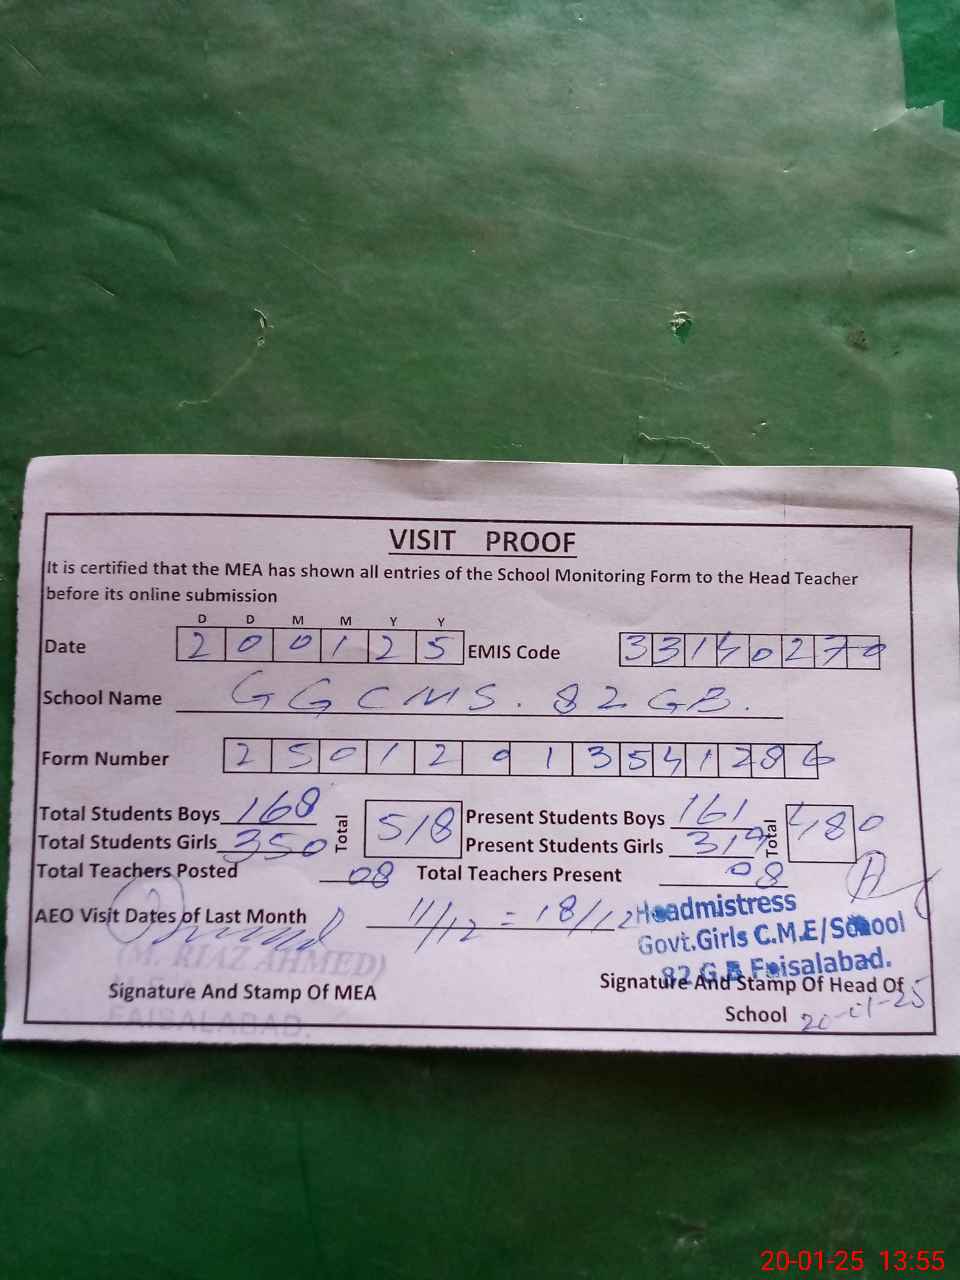 VISIT PROOF
It is certified that the MEA has shown all entries of the School Monitoring Form to the Head Teacher
before its online submission
D D M M Y Y
Date 2 0 0 1 2 5 EMIS Code 3 3 1 4 0 2 7 0
School Name GGCMS. 82 GB.
Form Number 2 5 0 1 2 0 1 3 5 4 1 2 8 6
Total Students Boys 168 Total 518 Present Students Boys 161 Total 480
Total Students Girls 350 Present Students Girls 319
Total Teachers Posted 08 Total Teachers Present 08
AEO Visit Dates of Last Month 11/12 = 18/12
Headmistress
Govt.Girls C.M.E/School
82 G.B Faisalabad.
(M. RIAZ AHMED)
Signature And Stamp Of MEA
FAISALABAD.
Signature And Stamp Of Head Of
School 20-01-25
20-01-25 13:55